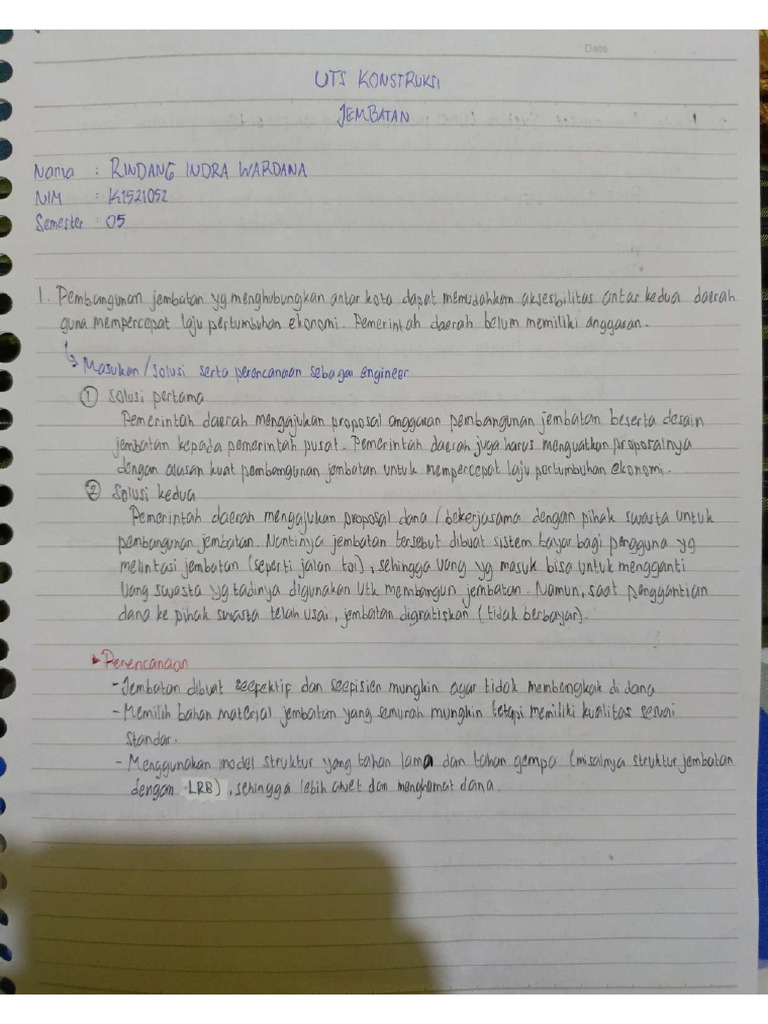 Date
UTS KONSTRUKSI
JEMBATAN
Nama : RINDANG INDRA WARDANA
NIM : K1521052
Semester : 05
1. Pembangunan jembatan yg menghubungkan antar kota dapat memudahkan aksesbilitas antar kedua daerah
guna mempercepat laju pertumbuhan ekonomi. Pemerintah daerah belum memiliki anggaran.
↳ Masukan/solusi serta perencanaan sebagai engineer
① Solusi pertama
Pemerintah daerah mengajukan proposal anggaran pembangunan jembatan beserta desain
jembatan kepada pemerintah pusat. Pemerintah daerah juga harus menguatkan proposalnya
dengan alasan kuat pembangunan jembatan untuk mempercepat laju pertumbuhan ekonomi.
② Solusi kedua
Pemerintah daerah mengajukan proposal dana / bekerjasama dengan pihak swasta untuk
pembangunan jembatan. Nantinya jembatan tersebut dibuat sistem bayar bagi pengguna yg
melintasi jembatan (seperti jalan tol), sehingga uang yg masuk bisa untuk mengganti
uang swasta yg tadinya digunakan utk membangun jembatan. Namun, saat penggantian
dana ke pihak swasta telah usai, jembatan digratiskan (tidak berbayar).
▸ Perencanaan
- Jembatan dibuat seefektif dan seefisien mungkin agar tidak membengkak di dana
- Memilih bahan material jembatan yang semurah mungkin tetapi memiliki kualitas sesuai
standar.
- Menggunakan model struktur yang tahan lama dan tahan gempa (misalnya struktur jembatan
dengan LRB), sehingga lebih awet dan menghemat dana.